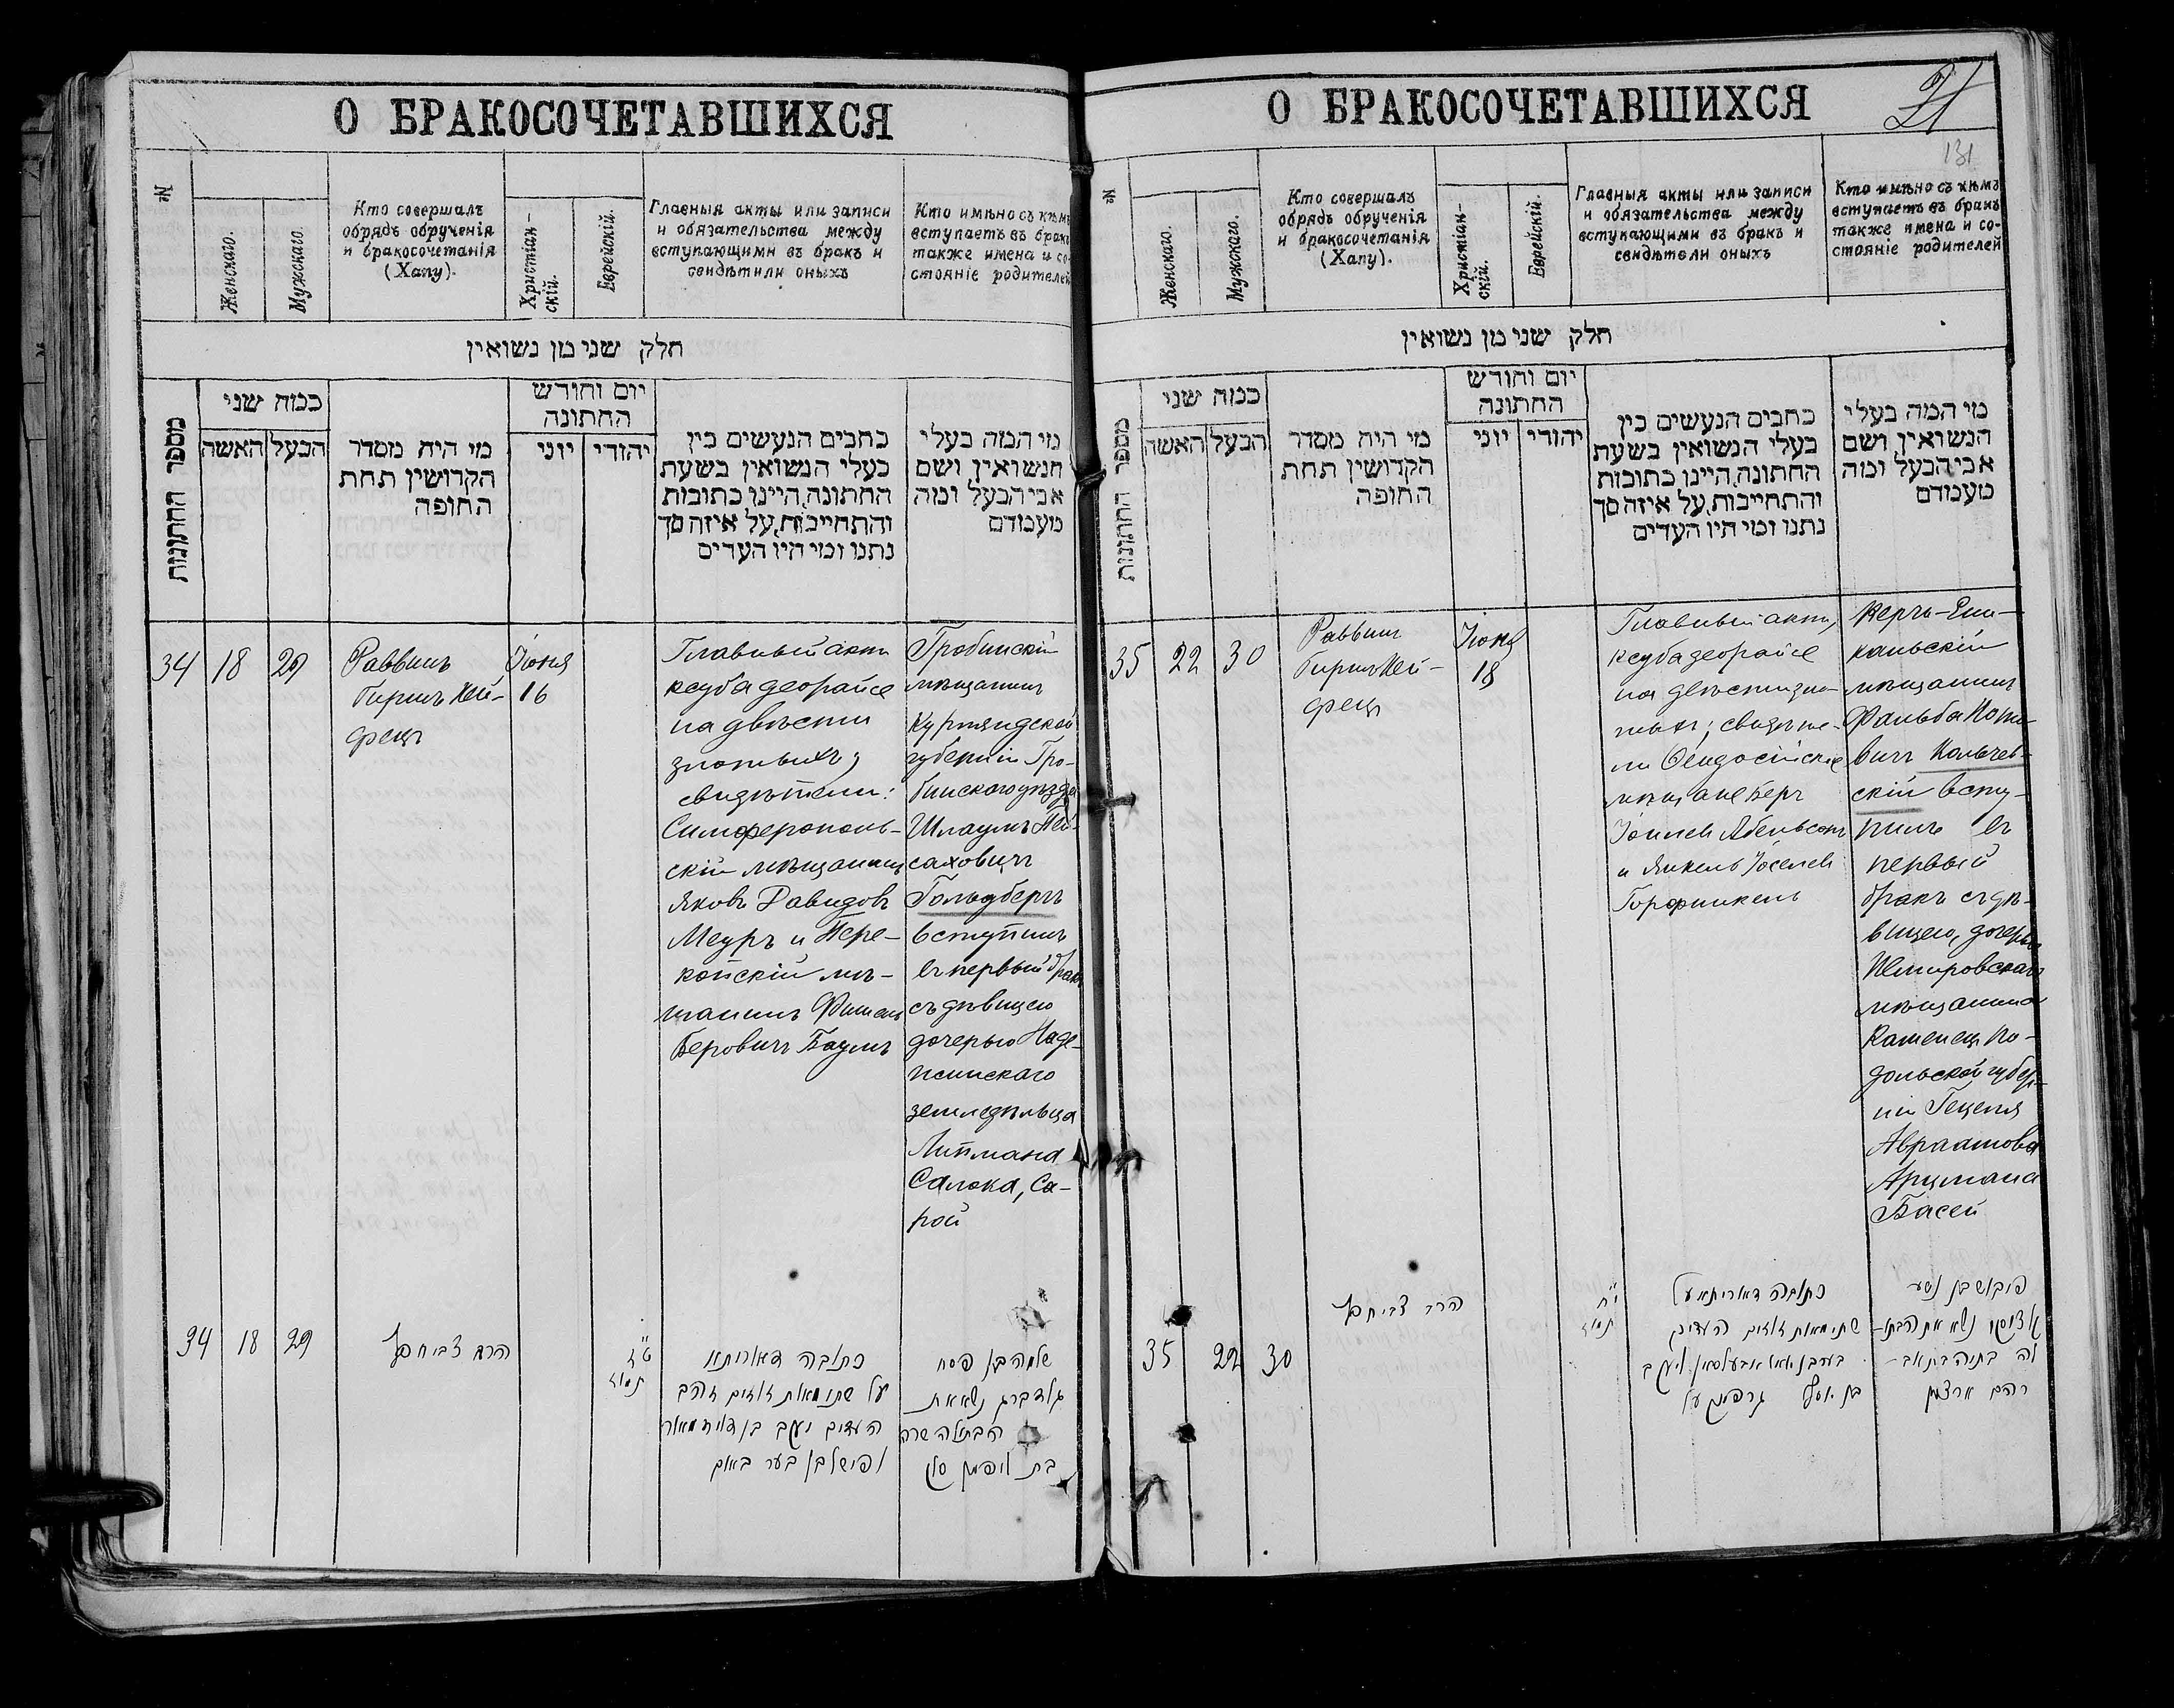 О БРАКОСОЧЕТАВШИХСЯ
№
Женскаго.
Мужскаго.
Кто совершалъ
обрядъ обрученія
и бракосочетанія
(Хапу).
Христіан-
скій.
Еврейскій.
Главныя акты или записи
и обязательства между
вступающими въ бракъ и
свидѣтили оныхъ
Кто имѣно съ кѣмъ
вступаетъ въ бракъ
также имена и со-
стояніе родителей
חלק שני מן נשואין
מספר החתונות
כמה שני
האשה
הבעל
מי היה מסדר
הקדושין תחת
החופה
יום וחודש
החתונה
יוני
יהודי
כתבים הנעשים בין
בעלי הנשואין בשעת
החתונה, היינו כתובות
והתחייבות, על איזה סך
נתנו ומי היו העדים
מי המה בעלי
הנשואין ושם
אבי הבעל ומה
מעמדם
34
18
29
Раввинъ
Гиршъ Хей-
фецъ
Іюня
16
Главный актъ
ксуба деорайсе
на двѣсти
злотыхъ;
свидѣтели:
Симферополь-
скій мѣщанинъ
Яковъ Давидовъ
Мецръ и Пере-
копскій мѣ-
щанинъ Фишель
Беровичъ Баумъ
Гробинскій
мѣщанинъ
Курляндской
губерніи Гро-
бинскаго уѣзда
Шлаумъ Пей-
саховичъ
Гольдбергъ
вступилъ
въ первый бракъ
съ дѣвицею
дочерью Наде-
жинскаго
земледѣльца
Липмана
Салока, Са-
рой
34
18
29
הרב צבי חפץ
ט״ז
תמוז
כתובה דאוריתא
על שתי מאות זוזים זהב
העדים יעקב בן דוד
ופישל בן בער באום
שלמה בן פסח
גולדברג נשא את
הבתולה שרה
בת ליפמן
О БРАКОСОЧЕТАВШИХСЯ
21
131
№
Женскаго.
Мужскаго.
Кто совершалъ
обрядъ обрученія
и бракосочетанія
(Хапу).
Христіан-
скій.
Еврейскій.
Главныя акты или записи
и обязательства между
вступающими въ бракъ и
свидѣтели оныхъ
Кто имѣно съ кѣмъ
вступаетъ въ бракъ
также имена и со-
стояніе родителей
חלק שני מן נשואין
מספר החתונות
כמה שני
האשה
הבעל
מי היה מסדר
הקדושין תחת
החופה
יום וחודש
החתונה
יוני
יהודי
כתבים הנעשים בין
בעלי הנשואין בשעת
החתונה, היינו כתובות
והתחייבות, על איזה סך
נתנו ומי היו העדים
מי המה בעלי
הנשואין ושם
אבי הבעל ומה
מעמדם
35
22
30
Раввинъ
Гиршъ Хей-
фецъ
Іюня
18
Главный актъ,
ксуба деорайсе
на двѣсти зло-
тыхъ; свидѣте-
ли Ѳеодосійскіе
мѣщане Беръ
Іоилевъ Абельсонъ
и Янкель Іоселевъ
Горфинкель
Керчь-Ени-
кальскій
мѣщанинъ
Файвба Ноты-
вичъ Кольчев-
скій всту-
пилъ въ
первый
бракъ съ дѣ-
вицею, дочерью
Немировскаго
мѣщанина
Каменецъ По-
дольской губер-
ніи Гецеля
Авраамова
Арцмана
Басей
35
22
30
הרב צבי חפץ
י״ח
תמוז
כתובה דאוריתא על
שתי מאות זוזים העדים
בער בן יואל אבעלסאן ויעקב
בן יוסף גרפינקעל
פייבוש בן נטע
נשא את הבתו-
לה בתיה בת אב-
רהם ארצמן